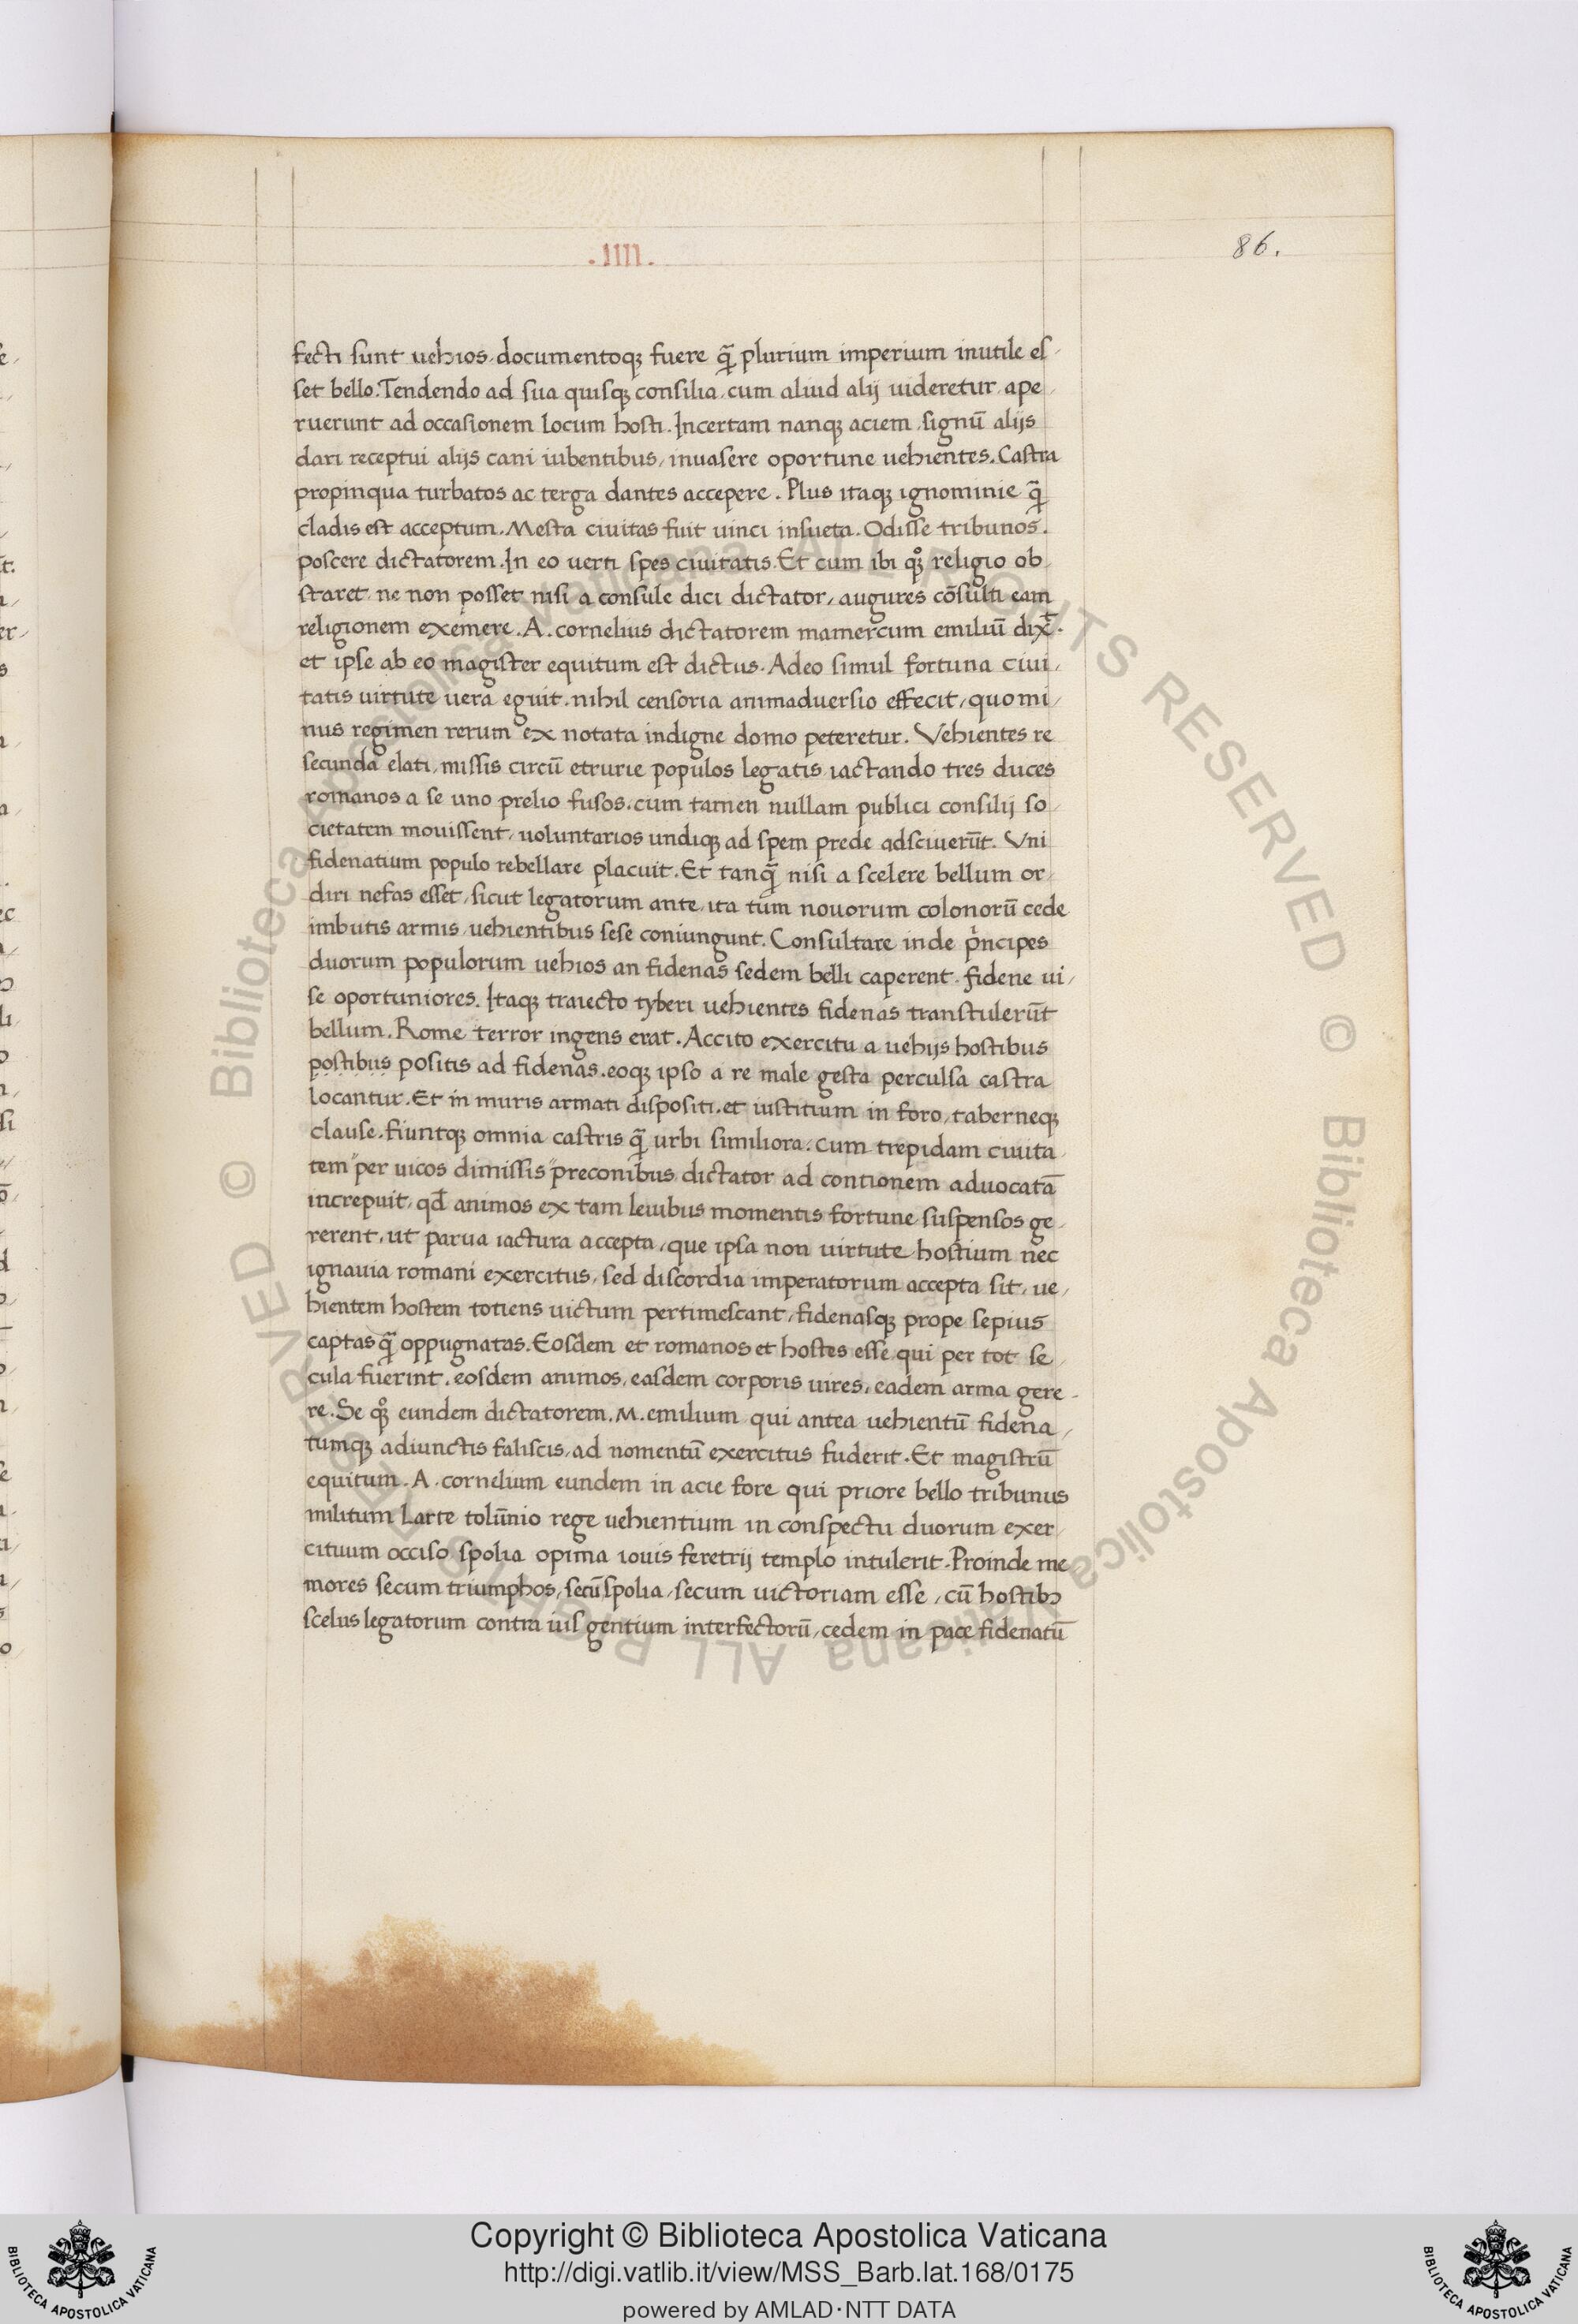 .IIII.
86.
fecti sunt uehios. documentoqꝫ fuere q̄ꝫ plurium imperium inutile es-
set bello. Tendendo ad sua quisqꝫ consilia, cum aliud alij uideretur, ape
ruerunt ad occasionem locum hosti. Incertam nanqꝫ aciem, signū alijs
dari receptui alijs cani iubentibus, inuasere oportune uehientes. Castra
propinqua turbatos ac terga dantes accepere. Plus itaqꝫ ignominie q̄ꝫ
cladis est acceptum. Mesta ciuitas fuit uinci insueta. Odisse tribunos.
poscere dictatorem. In eo uerti spes ciuitatis. Et cum ibi qꝫͦ religio ob
staret, ne non posset nisi a consule dici dictator, augures cōsulti eam
religionem exemere. A. cornelius dictatorem mamercum emiliū dix̄.
et ipse ab eo magister equitum est dictus. Adeo simul fortuna ciui,
tatis uirtute uera eguit. nihil censoria animaduersio effecit, quo mi,
nus regimen rerum ex notata indigne domo peteretur. Vehientes re
secunda elati, missis circū etrurie populos legatis iactando tres duces
romanos a se uno prelio fusos. cum tamen nullam publici consilij so
cietatem mouissent, uoluntarios undiqꝫ ad spem prede adsciuerūt. Vni
fidenatium populo rebellare placuit. Et tanq̄ꝫ nisi a scelere bellum or
diri nefas esset, sicut legatorum ante, ita tum nouorum colonorū cede
imbutis armis, uehientibus sese coniungunt. Consultare inde pͥncipes
duorum populorum uehios an fidenas sedem belli caperent. fidene ui,
se oportuniores. Itaqꝫ traiecto tyberi uehientes fidenas transtulerūt
bellum. Rome terror ingens erat. Accito exercitu a uehijs hostibus
postibus positis ad fidenas. eoqꝫ ipso a re male gesta perculsa castra
locantur. Et in muris armati dispositi. et iustitium in foro, taberneqꝫ
clause. fiuntqꝫ omnia castris q̄ꝫ urbi similiora. cum trepidam ciuita
tem "per uicos dimissis "preconibus dictator ad contionem aduocatā
increpuit, qd̄ animos ex tam leuibus momentis fortune suspensos ge,
rerent, ut parua iactura accepta, que ipsa non uirtute hostium nec
ignauia romani exercitus, sed discordia imperatorum accepta sit, ue,
hientem hostem totiens uictum pertimescant, fidenasqꝫ prope sepius
captas q̄ꝫ oppugnatas. Eosdem et romanos et hostes esse qui per tot se,
cula fuerint, eosdem animos, easdem corporis uires, eadem arma gere-
re. Se qꝫͦ eundem dictatorem. M. emilium qui antea uehientū fidena,
tumqꝫ adiunctis faliscis, ad nomentū exercitus fuderit. Et magistrū
equitum. A. cornelium eundem in acie fore qui priore bello tribunus
militum Larte tolūnio rege uehientium in conspectu duorum exer
cituum occiso spolia opima iouis feretrij templo intulerit. Proinde me
mores secum triumphos, secū spolia, secum uictoriam esse, cū hostibꝫ
scelus legatorum contra ius gentium interfectorū, cedem in pace fidenatū
© Biblioteca Apostolica Vaticana ALL RIGHTS RESERVED © Biblioteca Apostolica Vaticana ALL RIGHTS RESERVED
Copyright © Biblioteca Apostolica Vaticana
http://digi.vatlib.it/view/MSS_Barb.lat.168/0175
powered by AMLAD·NTT DATA
BIBLIOTECA APOSTOLICA VATICANA
BIBLIOTECA APOSTOLICA VATICANA